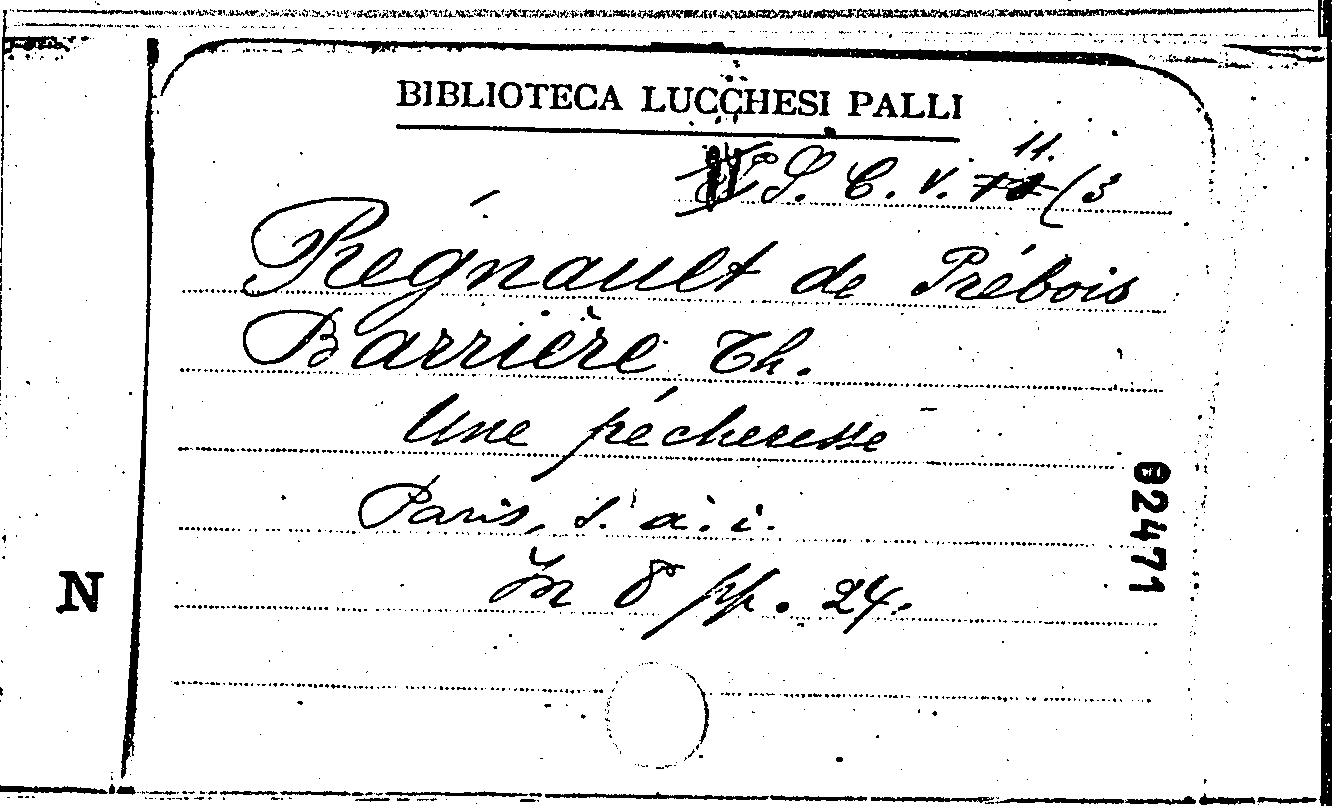 BIBLIOTECA LUCCHESI PALLI
S. C. V. 11. (3
Régnault de Prébois
Barrière Th.
Une pécheresse
Paris, s. a. i.
In 8 pp. 24.
82471
N